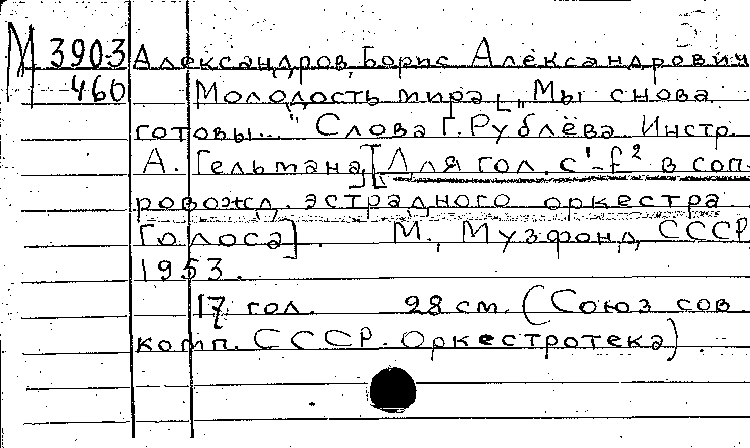 М 3903 Александров, Борис Александрович
460 Молодость мира. [„Мы снова
готовы..." Слова Г. Рублёва. Инстр.
А. Гельмана] [Для гол. c¹-f² в соп-
ровожд. эстрадного оркестра
Голоса]. М., Музфонд СССР,
1953.
17 гол. 28 см. (Союз сов
комп. СССР. Оркестротека).